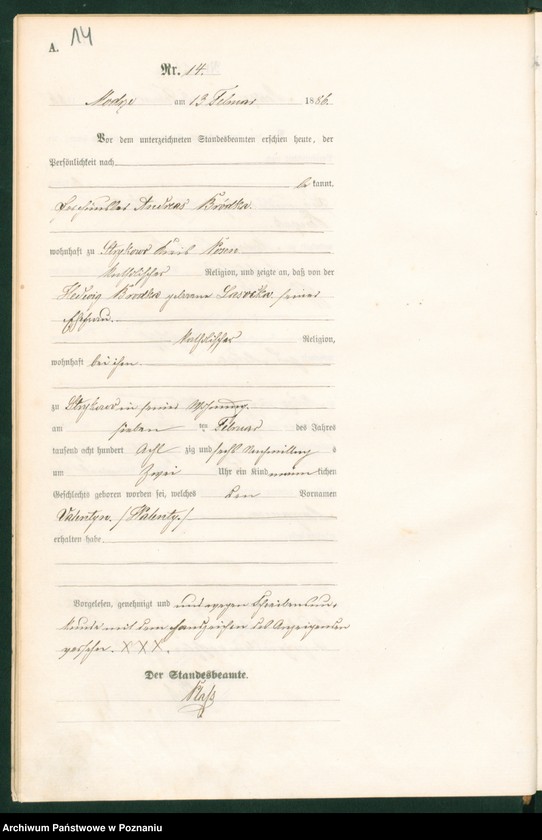 A. 14
Nr. 14.
Modze am 13 Februar 1886.
Vor dem unterzeichneten Standesbeamten erschien heute, der
Persönlichkeit nach
be kannt,
Andreas Bródka.
wohnhaft zu Strykowo Kreis Posen
katholischer Religion, und zeigte an, daß von der
Hedwig Brodka geborene seiner
Ehefrau.
katholischer Religion,
wohnhaft bei ihm
zu Strykowo in seiner Wohnung.
am sieben ten Februar des Jahres
tausend acht hundert Acht zig und sechs Nachmittag s
um Zwei Uhr ein Kind männlichen
Geschlechts geboren worden sei, welches den Vornamen
Valentyn. /Walenty./
erhalten habe.
Vorgelesen, genehmigt und und wegen Schreibensun-
kunde mit dem Handzeichen des Anzeigenden
versehen. XXX.
Der Standesbeamte.
Archiwum Państwowe w Poznaniu